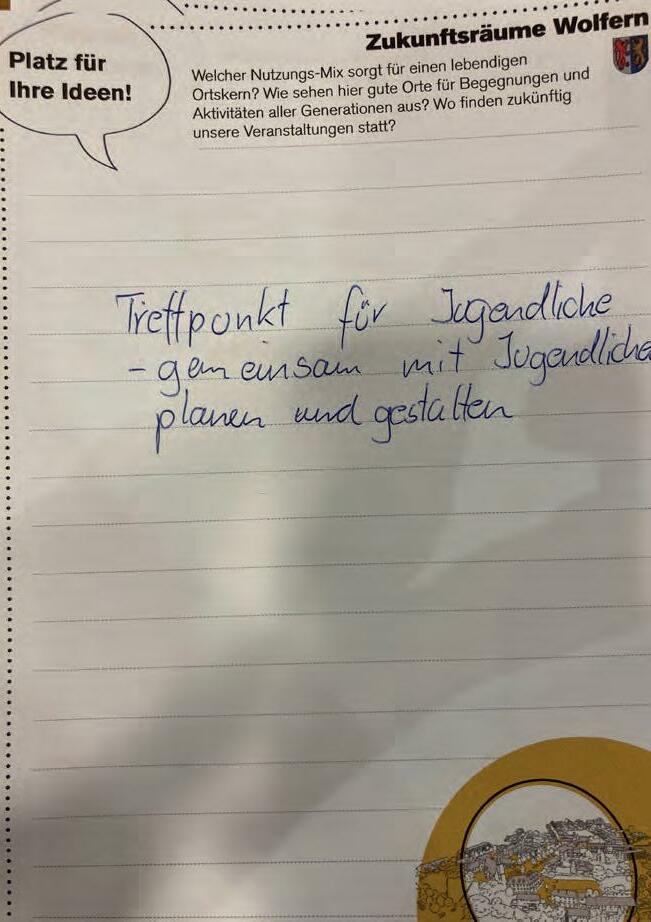 Zukunftsräume Wolfern
Platz für
Ihre Ideen!
Welcher Nutzungs-Mix sorgt für einen lebendigen
Ortskern? Wie sehen hier gute Orte für Begegnungen und
Aktivitäten aller Generationen aus? Wo finden zukünftig
unsere Veranstaltungen statt?
Treffpunkt für Jugendliche
- gemeinsam mit Jugendliche
planen und gestalten